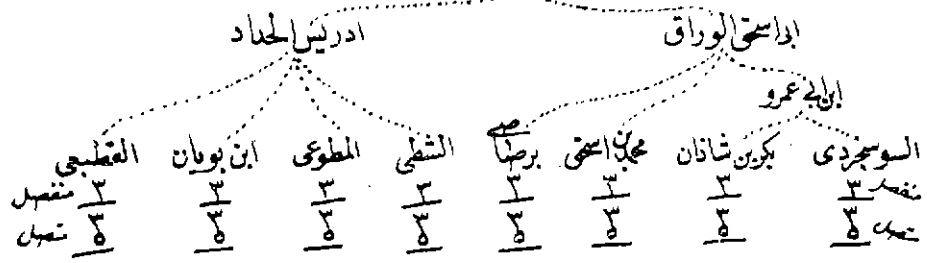 ابو اسحق الوراق ادريس الحداد
ابن ابي عمرو
السوسنجردى بكر بن شاذان محمد بن اسحق برصاصى الشطى المطوعى ابن بويان القطيعى
منفصل ٣ ٣ ٣ ٣ ٣ ٣ ٣ ٣ منفصل
متصل متصل